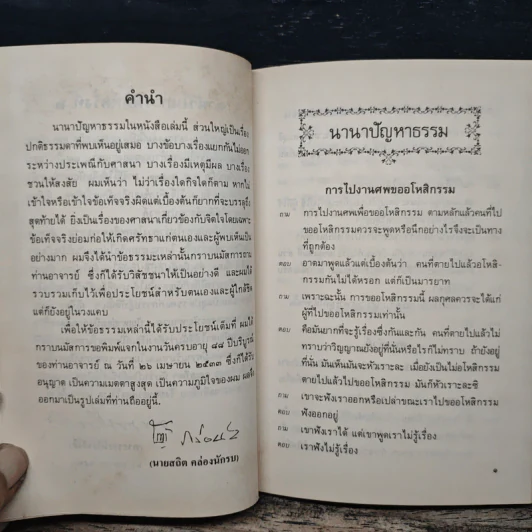 คำนำ
นานาปัญหาธรรมในหนังสือเล่มนี้ ส่วนใหญ่เป็นเรื่อง
ปกติธรรมดาที่พบเห็นอยู่เสมอ บางข้อบางเรื่องแยกกันไม่ออก
ระหว่างประเพณีกับศาสนา บางเรื่องมีเหตุมีผล บางเรื่อง
ชวนให้สงสัย ผมเห็นว่า ไม่ว่าเรื่องใดกิจใดก็ตาม หากไม่
เข้าใจหรือเข้าใจข้อเท็จจริงผิดแต่เบื้องต้นก็ยากที่จะบรรลุถึง
สุดท้ายได้ ยิ่งเป็นเรื่องของศาสนาเกี่ยวข้องกับจิตใจโดยเฉพาะ
ข้อเท็จจริงย่อมก่อให้เกิดศรัทธาแก่ตนเองและผู้พบเห็นเป็น
อย่างมาก ผมจึงได้นำข้อธรรมะเหล่านี้กราบนมัสการถาม
ท่านอาจารย์ ซึ่งก็ได้รับวิสัชชนาให้เป็นอย่างดี และผมได้
รวบรวมเก็บไว้เพื่อประโยชน์สำหรับตนเองและผู้ใกล้ชิด
แต่ก็ยังอยู่ในวงแคบ
เพื่อให้ข้อธรรมเหล่านี้ได้รับประโยชน์เต็มที่ ผมได้
กราบนมัสการขอพิมพ์แจกในงานวันครบอายุ ๘๘ ปีบริบูรณ์
ของท่านอาจารย์ ณ วันที่ ๒๖ เมษายน ๒๕๓๓ ซึ่งก็ได้รับ
อนุญาต เป็นความเมตตาสูงสุด เป็นความภูมิใจของผม ผลจึง
ออกมาเป็นรูปเล่มที่ท่านถืออยู่นี้.
(นายสถิต คล่องนักรบ)
นานาปัญหาธรรม
การไปงานศพขออโหสิกรรม
ถาม การไปงานศพเพื่อขออโหสิกรรม ตามหลักแล้วคนที่ไป
ขออโหสิกรรมควรจะพูดหรือนึกอย่างไรจึงจะเป็นทาง
ที่ถูกต้อง
ตอบ อาตมาพูดแล้วแต่เบื้องต้นว่า คนที่ตายไปแล้วอโหสิ-
กรรมกันไม่ได้หรอก แต่ก็เป็นมารยาท
ถาม เพราะฉะนั้น การขออโหสิกรรมนี้ ผลกุศลควรจะได้แก่
ผู้ที่ไปขออโหสิกรรมเท่านั้น
ตอบ คือมันยากที่จะรู้เรื่องซึ่งกันและกัน คนที่ตายไปแล้วไม่
ทราบว่าวิญญาณยังอยู่ที่นั่นหรือไรก็ไม่ทราบ ถ้ายังอยู่
ที่นั่น มันเห็นมันจะหัวเราะละ เมื่อยังเป็นไม่อโหสิกรรม
ตายไปแล้วไปขออโหสิกรรม มันก็หัวเราะละซิ
ถาม เขาจะฟังเราออกหรือเปล่าขณะเราไปขออโหสิกรรม
ตอบ ฟังออกอยู่
ถาม เขาฟังเราได้ แต่เขาพูดเราไม่รู้เรื่อง
ตอบ เราฟังไม่รู้เรื่อง
๑